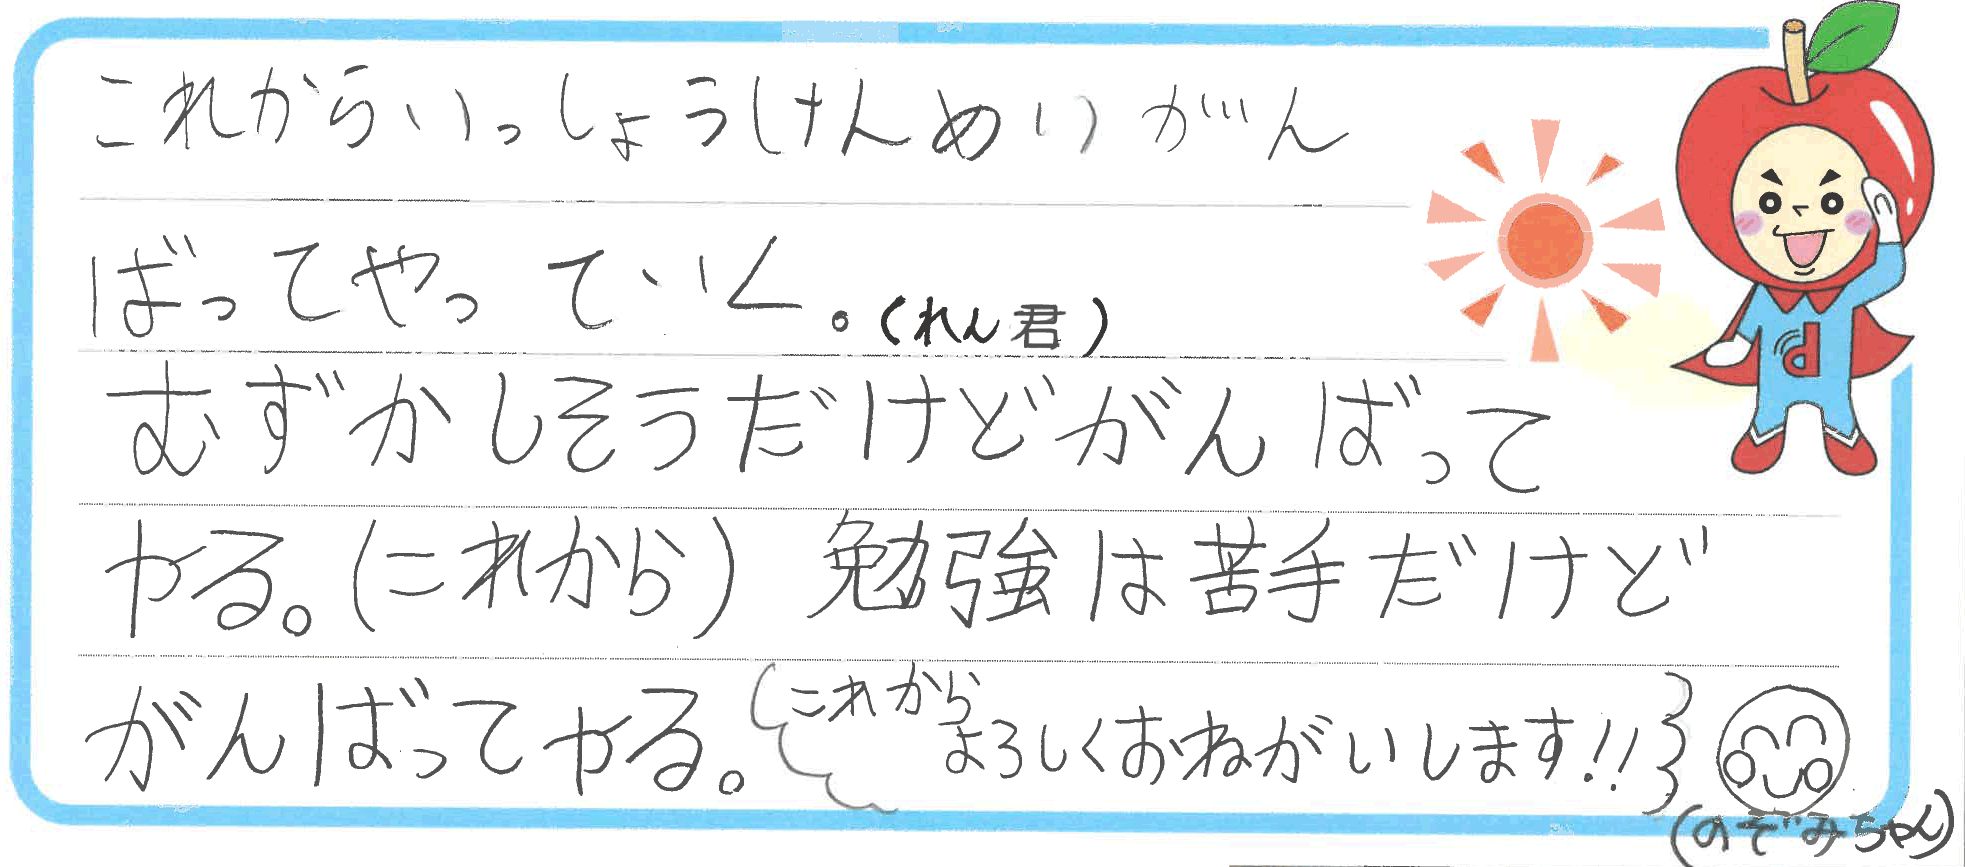 これからいっしょうけんめいがん
ばってやっていく。(れん君)
むずかしそうだけどがんばって
やる。(これから) 勉強は苦手だけど
がんばってやる。これから
よろしくおねがいします!!
(のぞみちゃん)